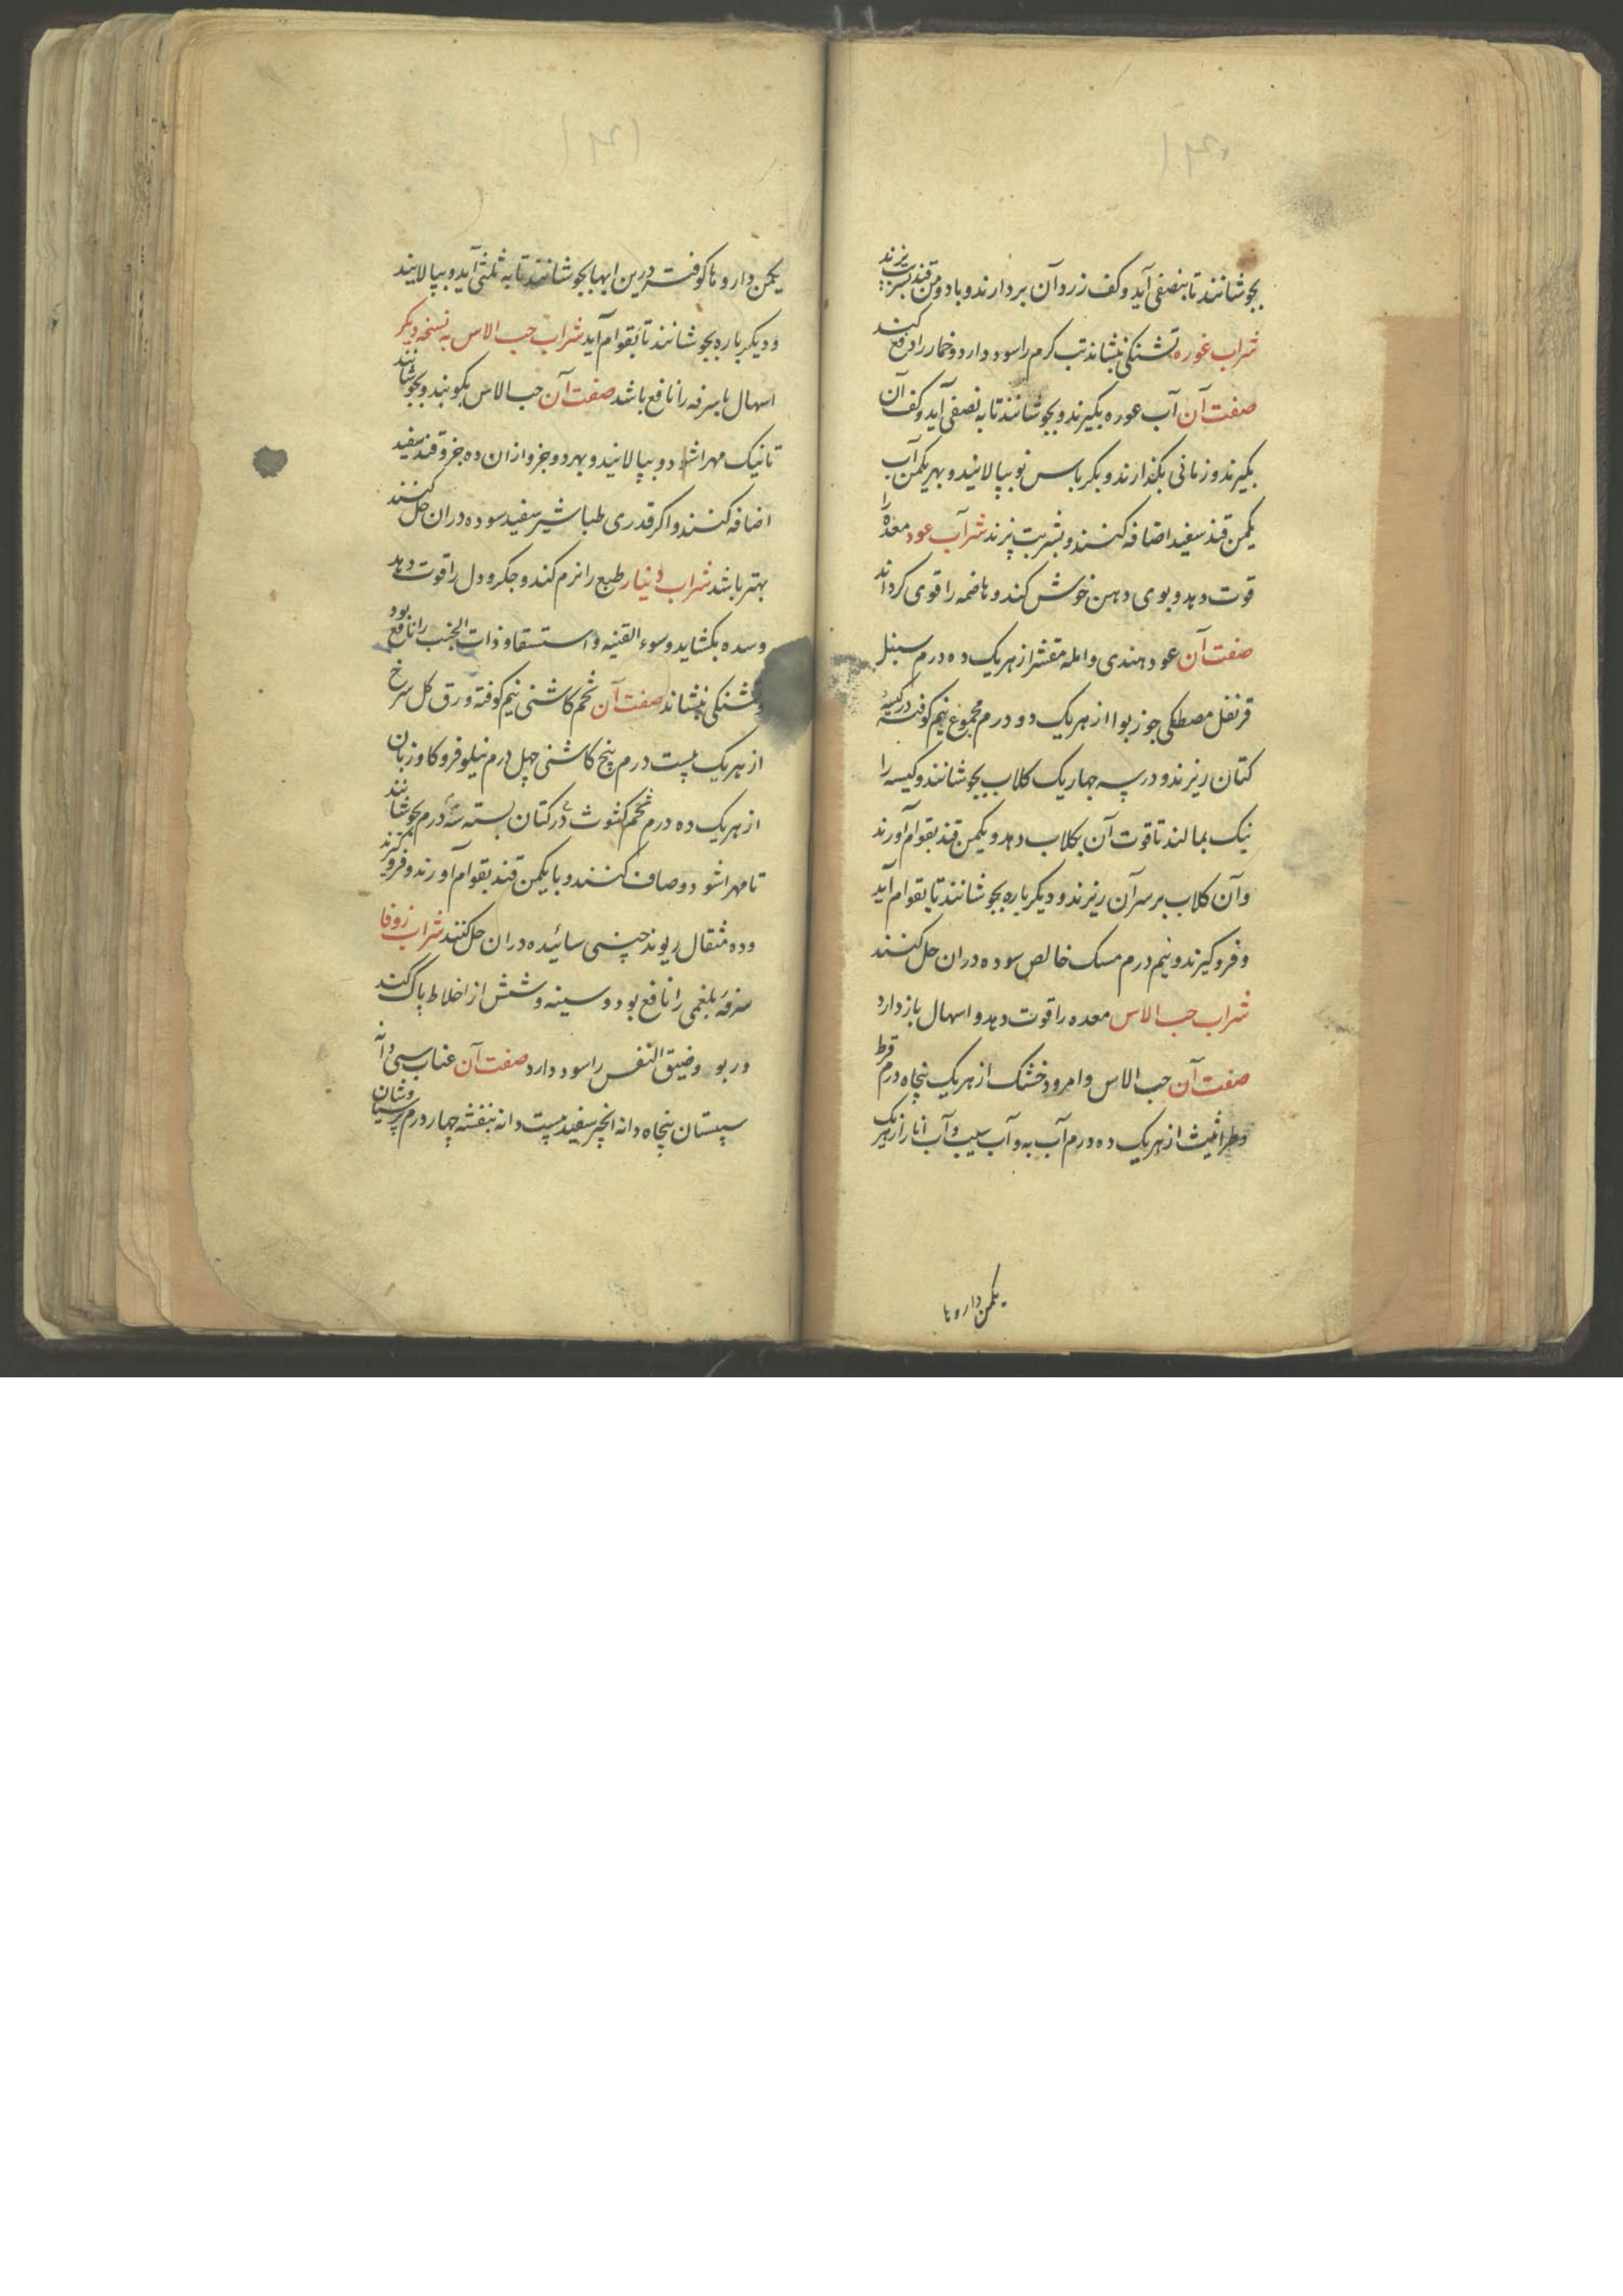 بجوشانند تا بنصفی آید و کف زرد آن بردارند و با دو من قند بشربت پزند
شراب غوره تشنکی بنشاند تب کرم را سود دارد و خمار را دفع کند
صفت آن آب غوره بکیرند و بجوشانند تا به نصفی آید و کف آن
بکیرند و زمانی بکذارند و بکرباس نو بپالایند و بهر یکمن آب
یکمن قند سفید اضافه کنند و بشربت پزند شراب عود معده را
قوت دهد و بوی دهن خوش کند و هاضمه را قوی کرداند
صفت آن عود هندی و امله مقشر از هر یک ده درم سنبل
قرنفل مصطکی جوز بوا از هر یک دو درم مجموع نیم کوفته در کیسهٔ
کتان ریزند و در سه چهار یک کلاب بجوشانند و کیسه را
نیک بمالند تا قوت آن بکلاب دهد و یکمن قند بقوام آورند
و آن کلاب بر سر آن ریزند و دیکر باره بجوشانند تا بقوام آید
و فرو کیرند و نیم درم مسک خالص سوده در ان حل کنند
شراب حب الاس معده را قوت دهد و اسهال باز دارد
صفت آن حب الاس و امرود خشک از هر یک پنجاه درم قرط
و طراثیث از هر یک ده درم آب به و آب سیب و آب انار از هر یک
یکمن داروها
یکمن داروها کوفته درین ابها بجوشانند تا به ثلثی آید و بپالایند
و دیکر باره بجوشانند تا بقوام آید شراب حب الاس به نسخه دیکر
اسهال با سرفه را نافع باشد صفت آن حب الاس بکوبند و بجوشانند
تا نیک مهرا شود و بپالایند و بهر دو جزو از ان ده جزو قند سفید
اضافه کنند و اکر قدری طباشیر سفید سوده در ان حل کنند
بهتر باشد شراب دینار طبع را نرم کند و جکر و دل را قوت دهد
و سده بکشاید و سوء القنیه و استسقا و ذات الجنب را نافع بود
و تشنکی بنشاند صفت آن تخم کاشنی نیم کوفته ورق کل سرخ
از هر یک بیست درم بیخ کاشنی چهل درم نیلوفر و کاوزبان
از هر یک ده درم تخم کثوث در کتان بسته سه درم بجوشانند
تا مهرا شود و صاف کنند و با یکمن قند بقوام آورند و فرو کیرند
و ده مثقال ریوند چینی سائیده در ان حل کنند شراب زوفا
سرفه بلغمی را نافع بود و سینه و شش از اخلاط پاک کند
و ربو و ضیق النفس را سود دارد صفت آن عناب سی دانه
سپستان پنجاه دانه انجیر سفید بیست دانه بنفشه چهار درم پرسیاوشان